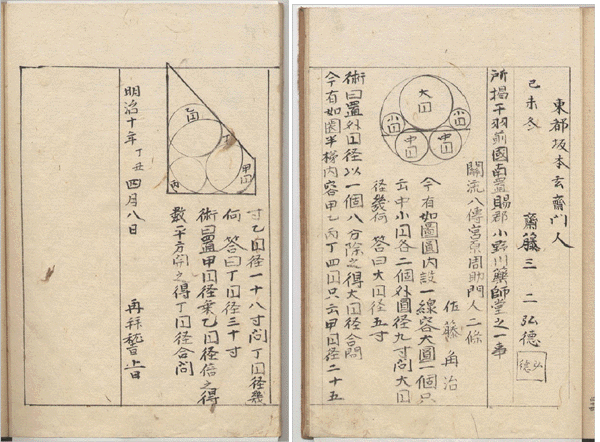 東都坂本玄齋門人
齋藤三二弘徳
弘徳
己未冬
所掲于羽前國南置賜郡小野川藥師堂之一事
關流八傳宮原周助門人二條
佐藤角治
大円
小円
小円
中円
中円
今有如圖圓内設一線容大圓一個只
云中小円各二個外圓径九寸問大円
径幾何 答曰大円径五寸
術曰置外円径以一個八分除之得大円径合問
今有如圖半梯内容甲乙丙丁四円只云甲円径二十五
甲円
丁
乙円
丙
寸乙円径一十八寸問丁円径幾
何 答曰丁円径三十寸
術曰置甲円径乗乙円径倍之得
數平方開之得丁円径合問
明治十年丁丑四月八日 再拝稽首白